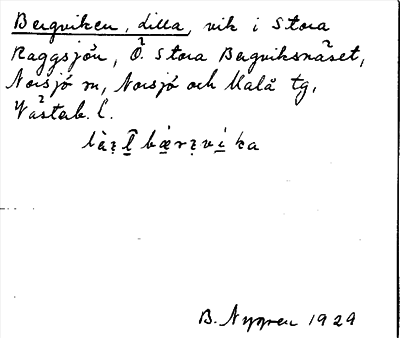 Bergviken, lilla, vik i Stora
Raggsjön, Ö. Stora Bergviksnäset,
Norsjö sn, Norsjö och Malå tg,
Västerb. l.
B. Nygren 1929